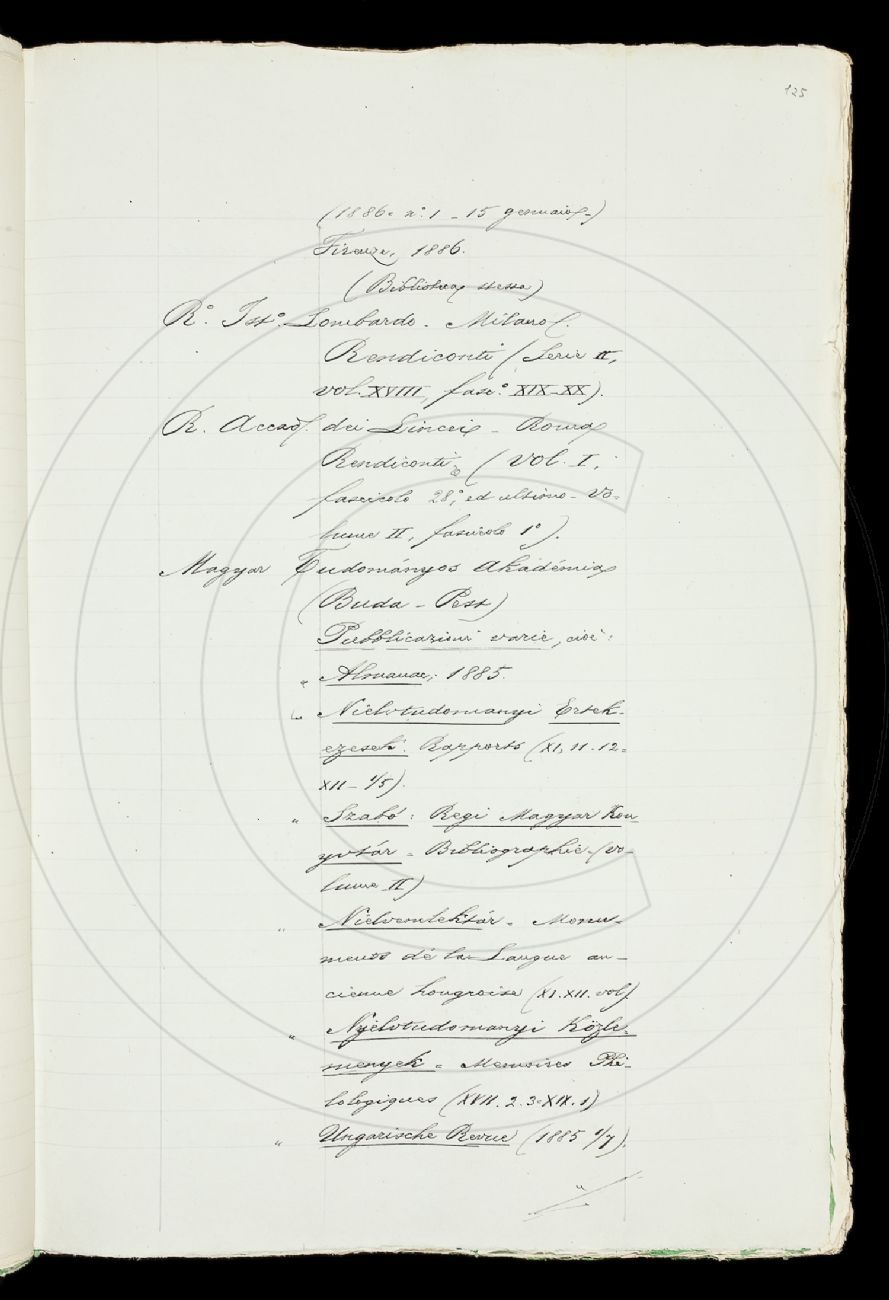 125
(1886. n.º 1 - 15 gennaio)
Firenze, 1886.
(Biblioteca stessa)
R.º Ist.º Lombardo. Milano.
Rendiconti (Serie II,
vol. XVIII, fasc.º XIX-XX).
R. Accad. dei Lincei - Roma
Rendiconti, (Vol. I,
fascicolo 28º, ed ultimo - Vo-
lume II, fascicolo 1º).
Magyar Tudományos Akadémia
(Buda-Pest)
Pubblicazioni varie, cioè:
" Almanac, 1885.
" Nielvtudomanyi Ertek-
ezesek. Rapports (XI, 11-12=
XII - 1/5).
" Szabó: Regi Magyar Kon-
yvtár - Bibliographie (vo-
lume II)
" Nielvemlektár. Monu-
ments de la Langue an-
cienne hongroise (XI. XII. vol).
" Nyelvtudomanyi Közle-
menyek = Memoires Phi-
lologiques (XVII. 2. 3 = XIX. 1)
" Ungarische Revue (1885 1/7).